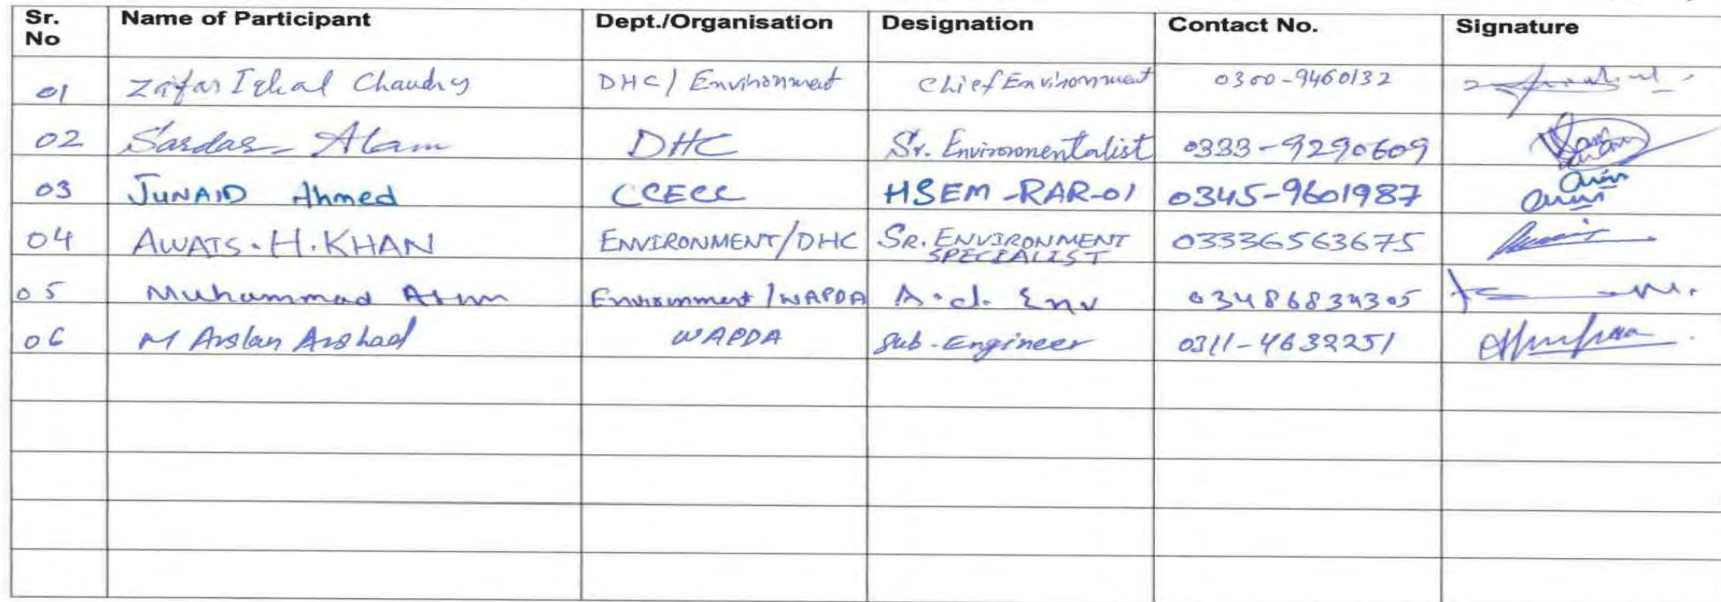 Sr. No Name of Participant Dept./Organisation Designation Contact No. Signature
01 Zafar Iqbal Chaudry DHC/Environment Chief Environment 0300-9460132
02 Sardar Alam DHC Sr. Environmentalist 0333-9290609
03 JUNAID Ahmed CCECC HSEM-RAR-01 0345-9601987
04 AWAIS.H.KHAN ENVIRONMENT/DHC SR. ENVIRONMENT SPECIALIST 03336563675
05 Muhammad Environment/WAPDA A.d. Env 03486834305
06 M Arslan Arshad WAPDA Sub-Engineer 0311-4632251